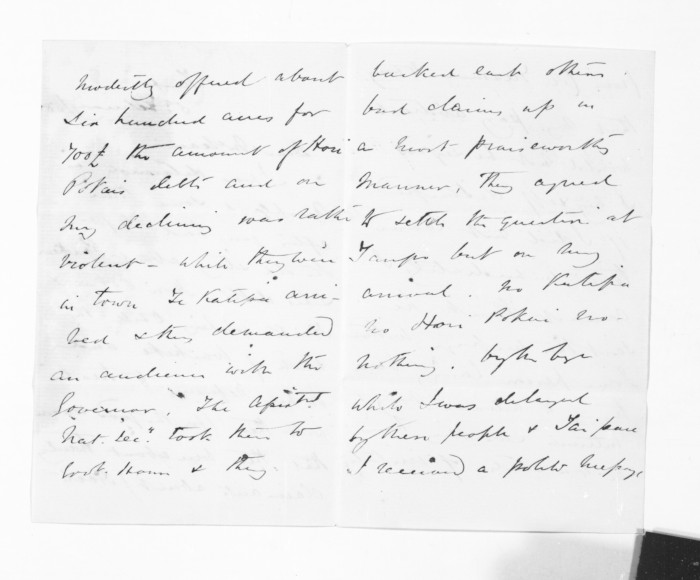 modestly offered about
six hundred acres for
700£ the amount of Hori
Pokais debts and on
my declining was rathe
violent - while they were
in town Te Katipa arri-
ved & they demanded
an audience with the
Governor, The Assist.
Nat. Sec. took them to
Govt. House & they
backed each others
bad claims up in
a most praiseworthy
manner, they agreed
to settle the question at
Taupo but on my
arrival. no Katipa
no Hori Pokai no-
nothing. by the bye
while I was delayed
by these people & Taipari
I received a polite message